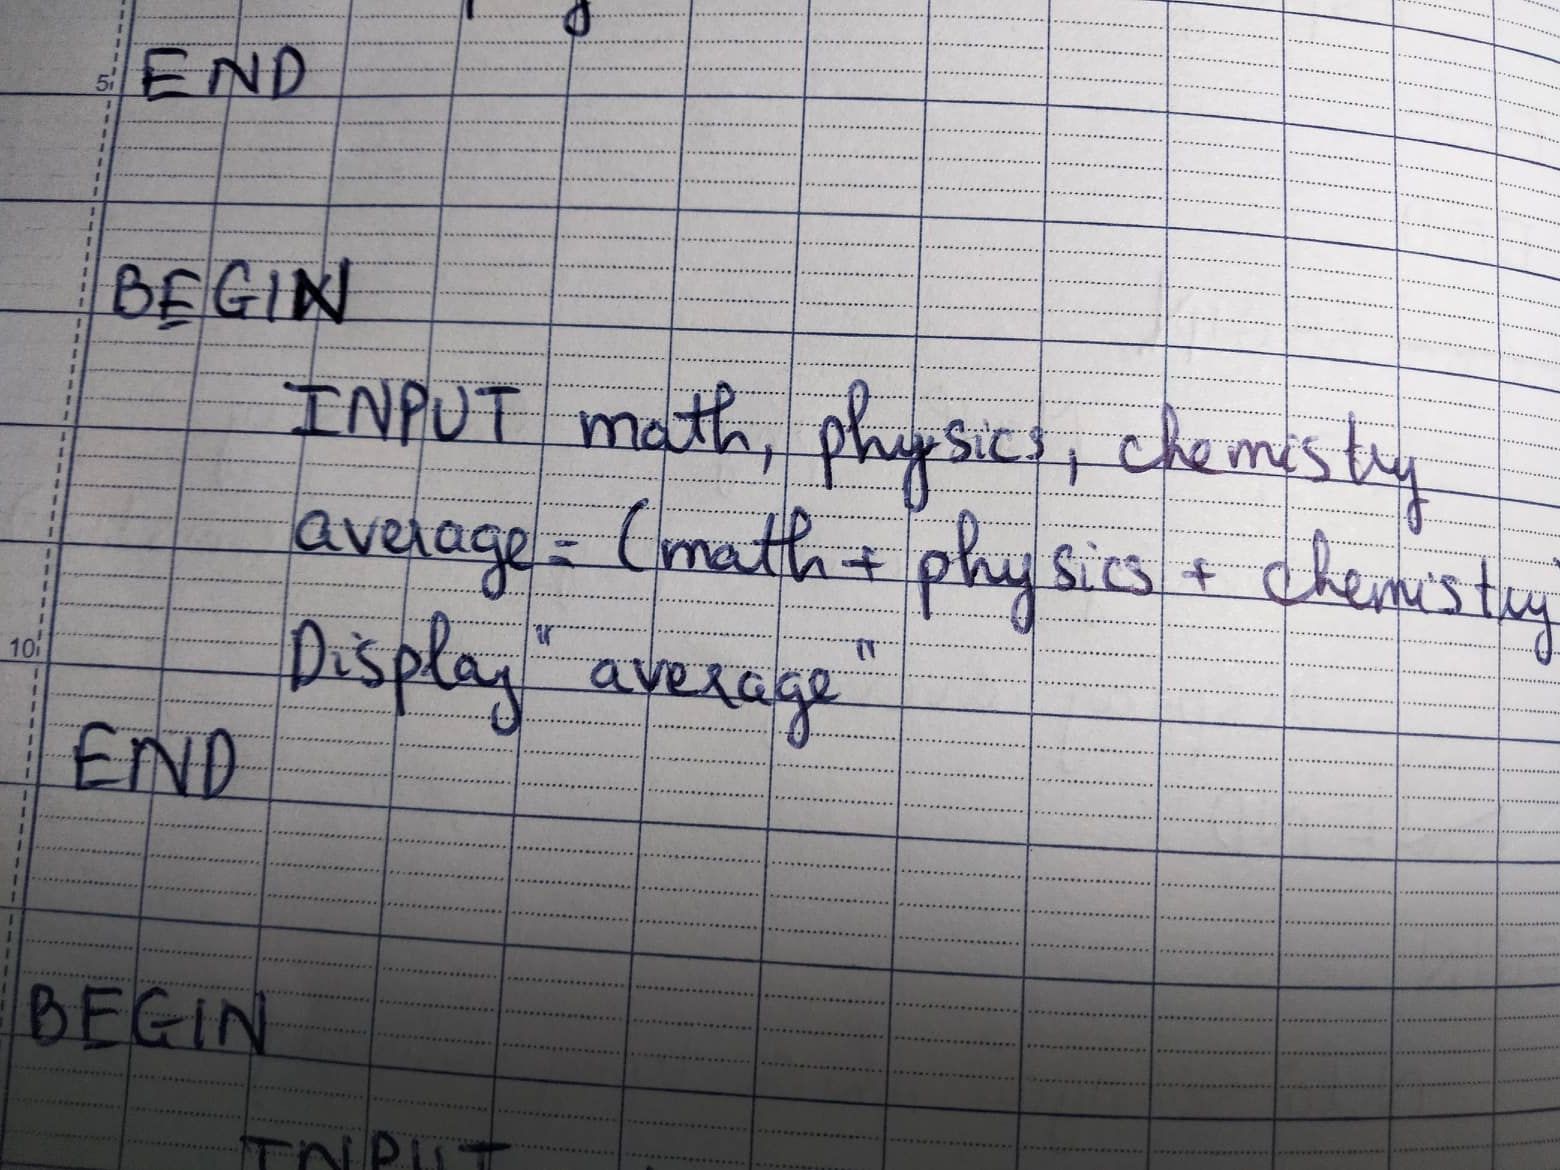 5
END
BEGIN
INPUT math, physics, chemistry
average = (math + physics + chemistry
Display " average "
10
END
BEGIN
INPUT